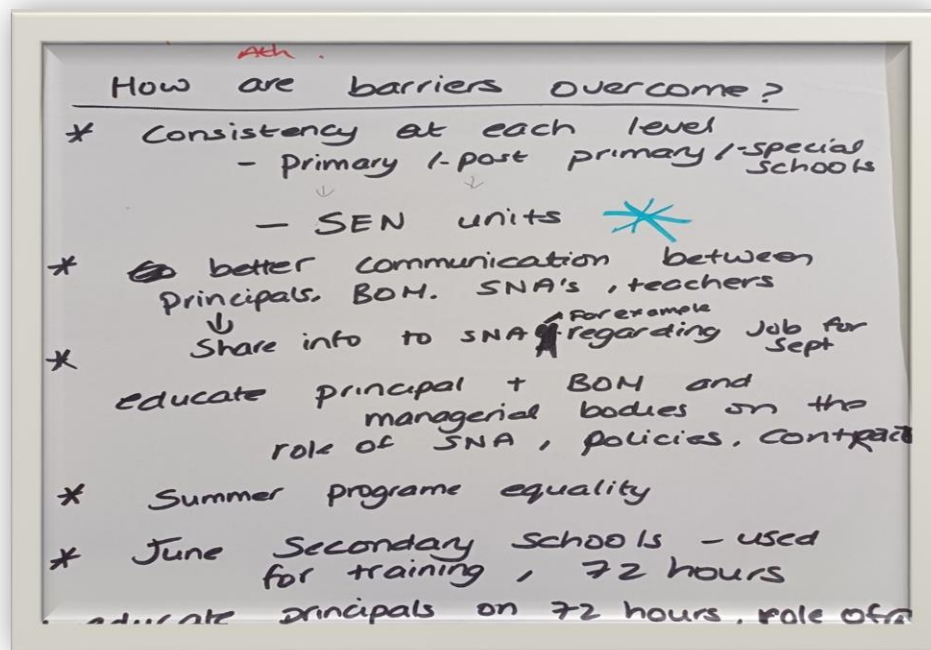 Ath.
How are barriers overcome?
* Consistency at each level
- Primary /-post primary /-special schools
- SEN units
* better communication between
principals. BOM. SNA's, teachers
↓ Share info to SNA for example regarding Job for Sept
*
educate principal + BOM and
managerial bodies on the
role of SNA, policies, contract
* Summer programe equality
* June Secondary schools - used
for training, 72 hours
educate principals on 72 hours, role of